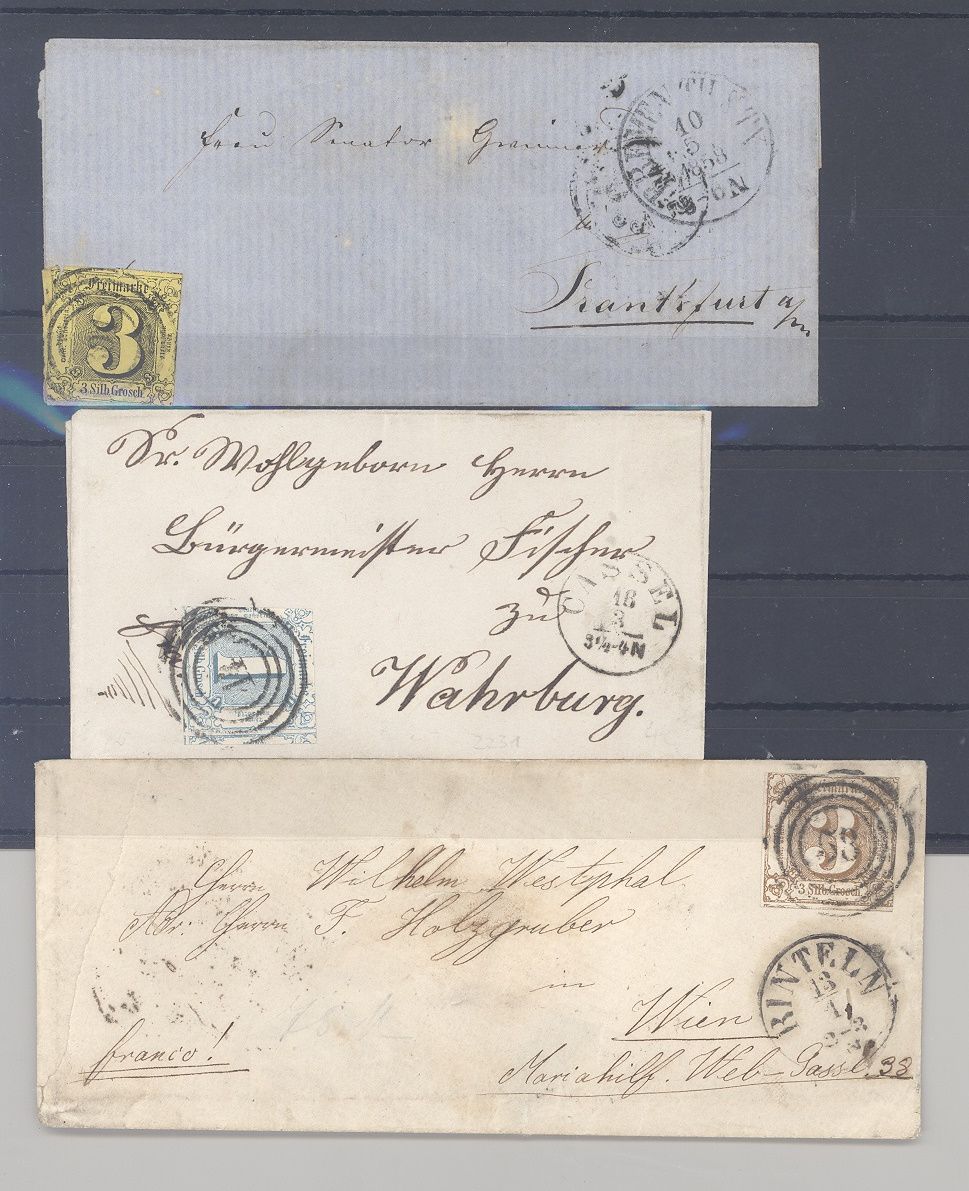 BREMEN TH & TX
10
5
1858
Frau Senator
Frankfurt a/m
Freimarke
3
3 Silb. Grosch
Sr. Wohlgeborn Herrn
Bürgermeister Fischer
zu
Wahrburg.
CASSEL
16
3
3¼-4N
1
2231
Freimarke
3
3 Silb. Grosch
Herrn Wilhelm Westphal.
Adr: Herrn F. Holzgruber
in
Wien
Mariahilf. Web-Gasse 38
franco!
RINTELN
13
11